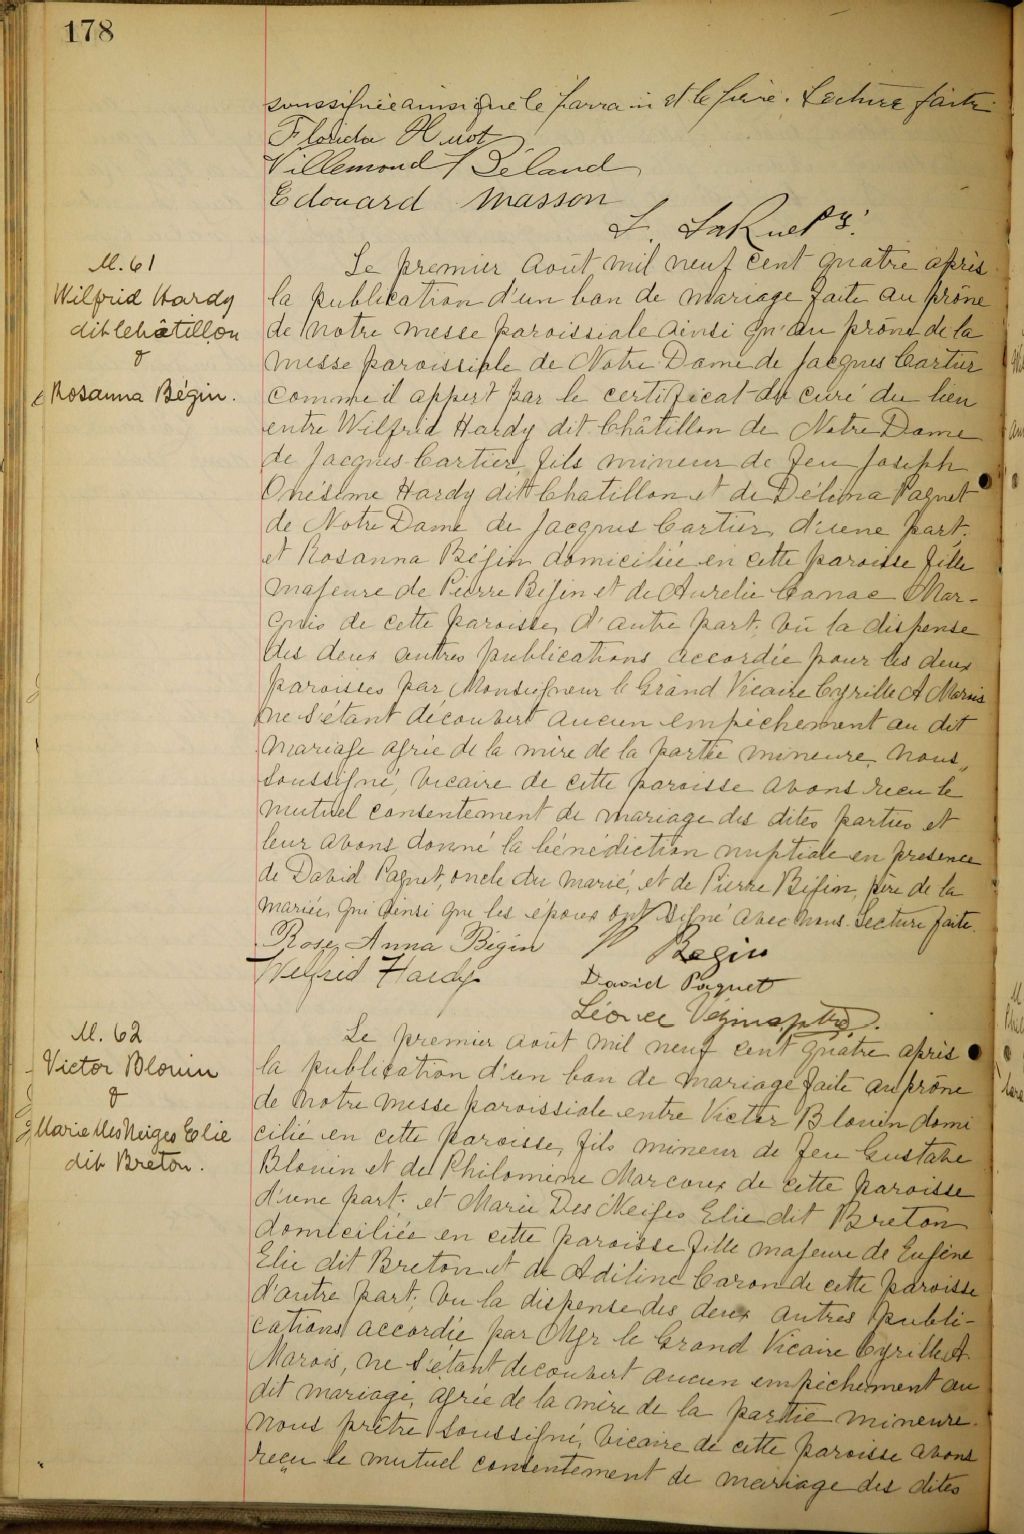 178
soussignée ainsi que le parrain et le père. Lecture faite
Florida Huot
Villemond Béland
Edouard Masson
L. LaRue Ptr.
M. 61
Wilfrid Hardy
dit Châtillon
&
Rosanna Bégin.
Le premier Août mil neuf cent quatre après
la publication d'un ban de mariage faite au prône
de notre messe paroissiale ainsi qu'au prône de la
messe paroissiale de Notre Dame de Jacques Cartier
comme il appert par le certificat du curé du lieu
entre Wilfrid Hardy dit Châtillon de Notre Dame
de Jacques-Cartier, fils mineur de feu Joseph
Onésime Hardy dit Chatillon et de Délima Paquet
de Notre Dame de Jacques Cartier, d'une part.
et Rosanna Bégin domiciliée en cette paroisse fille
majeure de Pierre Bégin et de Aurelie Canac Mar-
quis de cette paroisse, d'autre part. Vu la dispense
des deux autres publications accordée pour les deux
paroisses par Monseigneur le Grand Vicaire Cyrille A Marois
ne s'étant découvert aucun empêchement au dit
mariage agrée de la mère de la partie mineure, nous,
soussigné, vicaire de cette paroisse avons reçu le
mutuel consentement de mariage des dites parties et
leur avons donné la bénédiction nuptiale en presence
de David Paquet, oncle du marié, et de Pierre Bégin, père de la
mariée, qui ainsi que les époux ont signé avec nous. Lecture faite.
Rose Anna Bégin P Begin
Wilfrid Hardy David Paquet
Léonce Vézina, ptre.
M. 62
Victor Blouin
&
Marie des Neiges Elie
dit Breton.
Le premier août mil neuf cent quatre après
la publication d'un ban de mariage faite au prône
de notre messe paroissiale entre Victor Blouin domi
cilié en cette paroisse, fils mineur de feu Gustave
Blouin et de Philomène Marcoux de cette paroisse
d'une part; et Marie Des Neiges Elie dit Breton
domiciliée en cette paroisse fille majeure de Eugène
Elie dit Breton et de Adeline Caron de cette paroisse
d'autre part; Vu la dispense des deux autres publi-
cations accordée par Mgr le Grand Vicaire Cyrille A.
Marois, ne s'étant decouvert aucun empêchement au
dit mariage, agrée de la mère de la partie mineure.
nous prêtre soussigné, vicaire de cette paroisse avons
reçu le mutuel consentement de mariage des dites